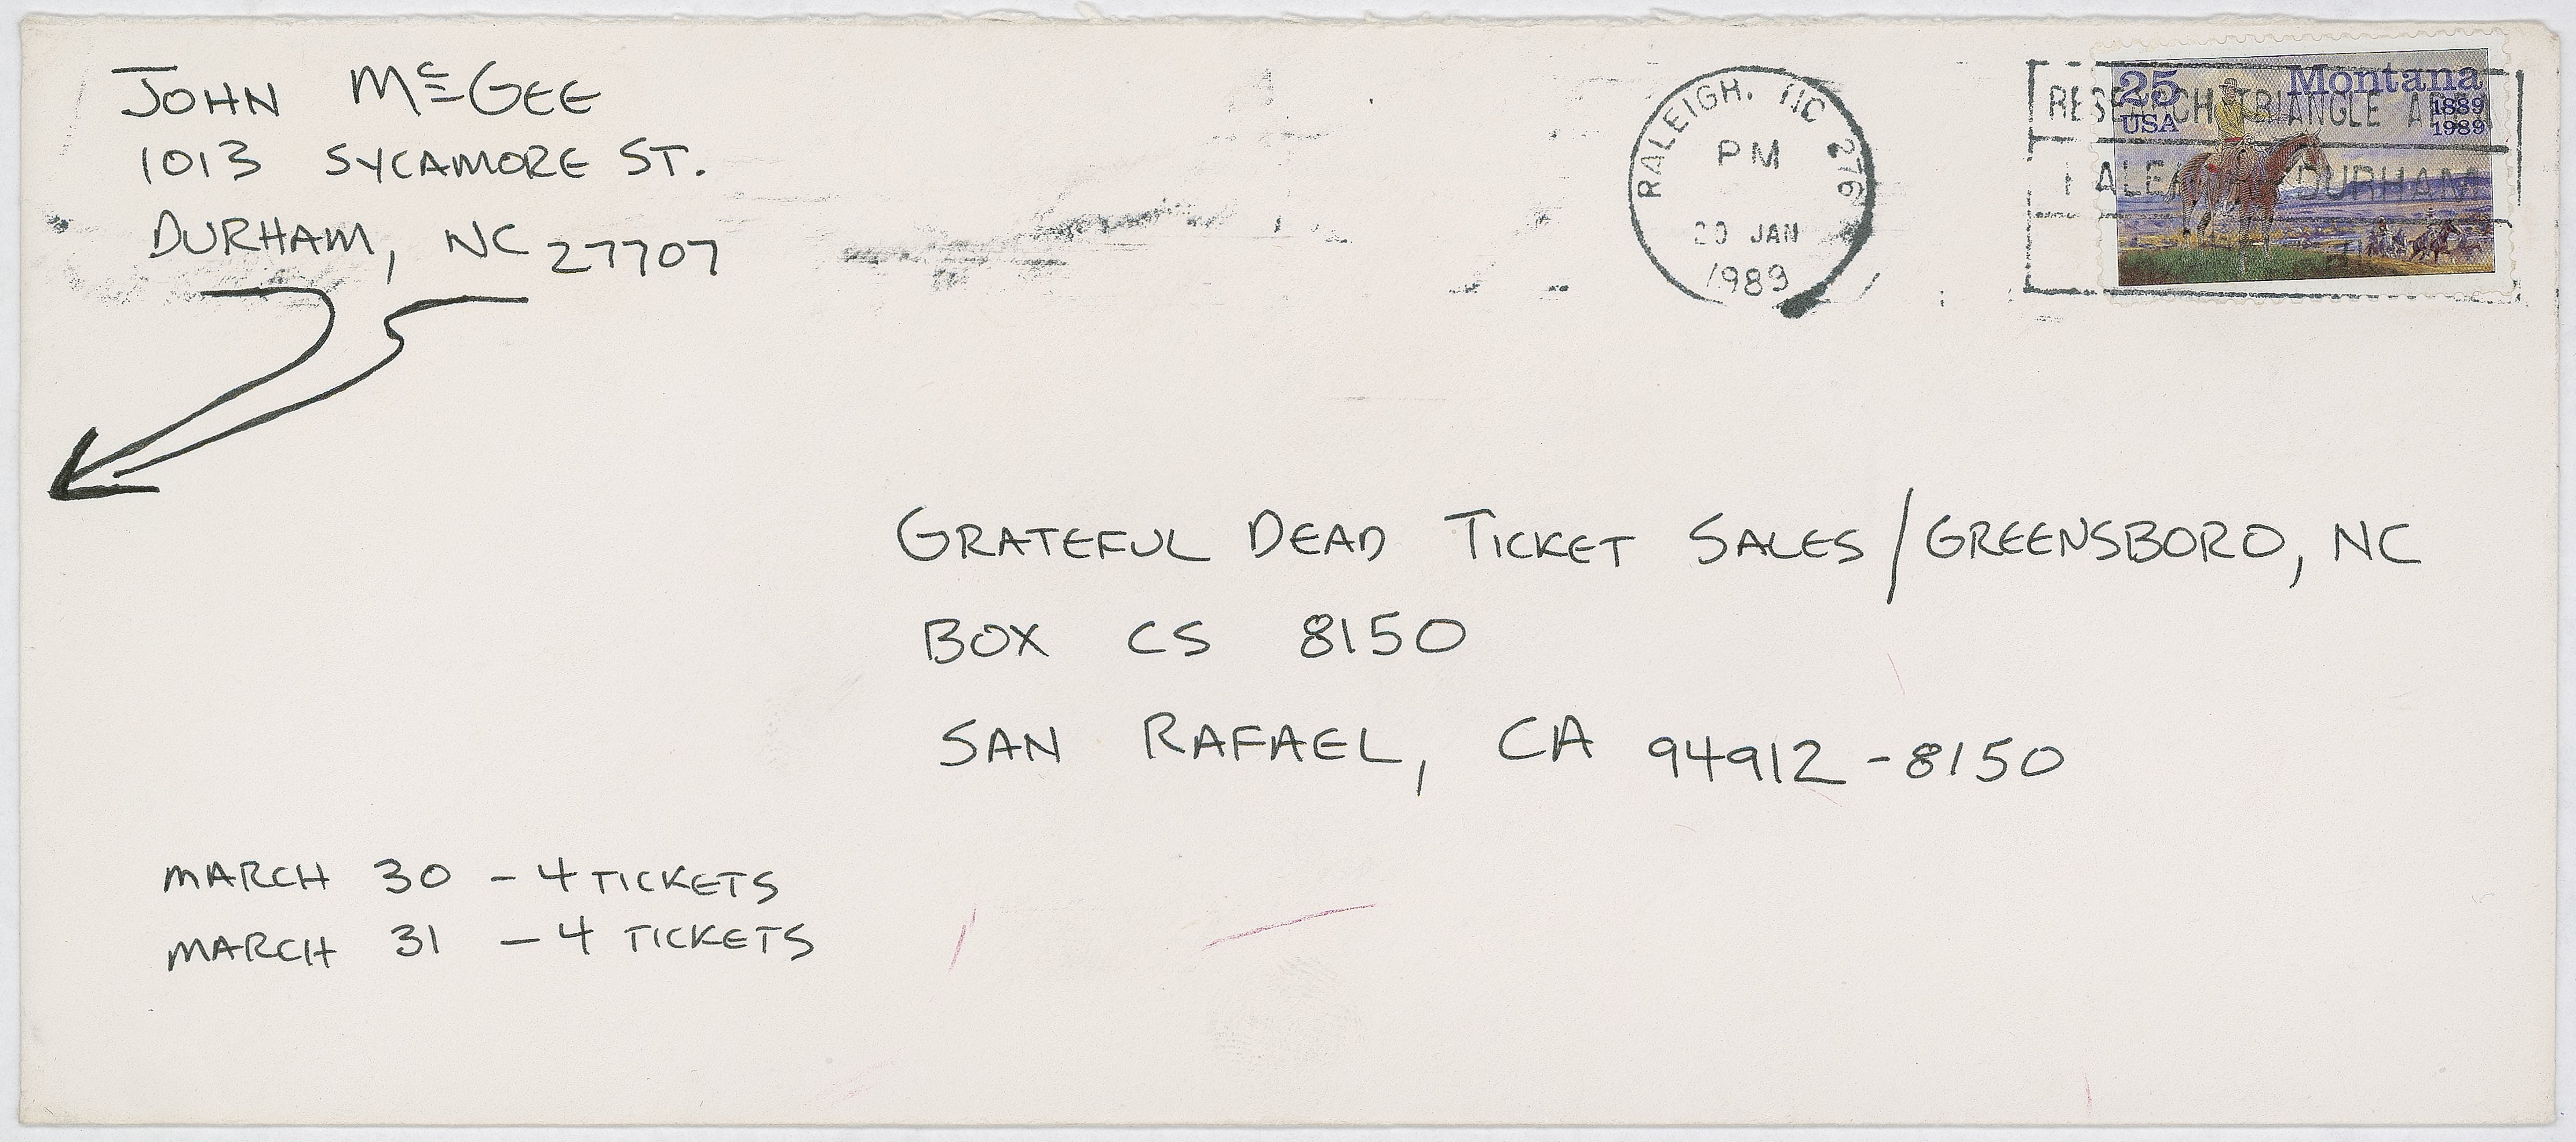 JOHN McGEE
1013 SYCAMORE ST.
DURHAM, NC 27707
RALEIGH, NC 276
PM
20 JAN
1989
RESEARCH TRIANGLE AREA
RALEIGH DURHAM
25
USA
Montana
1889
1989
GRATEFUL DEAD TICKET SALES/GREENSBORO, NC
BOX CS 8150
SAN RAFAEL, CA 94912-8150
MARCH 30 - 4 TICKETS
MARCH 31 - 4 TICKETS